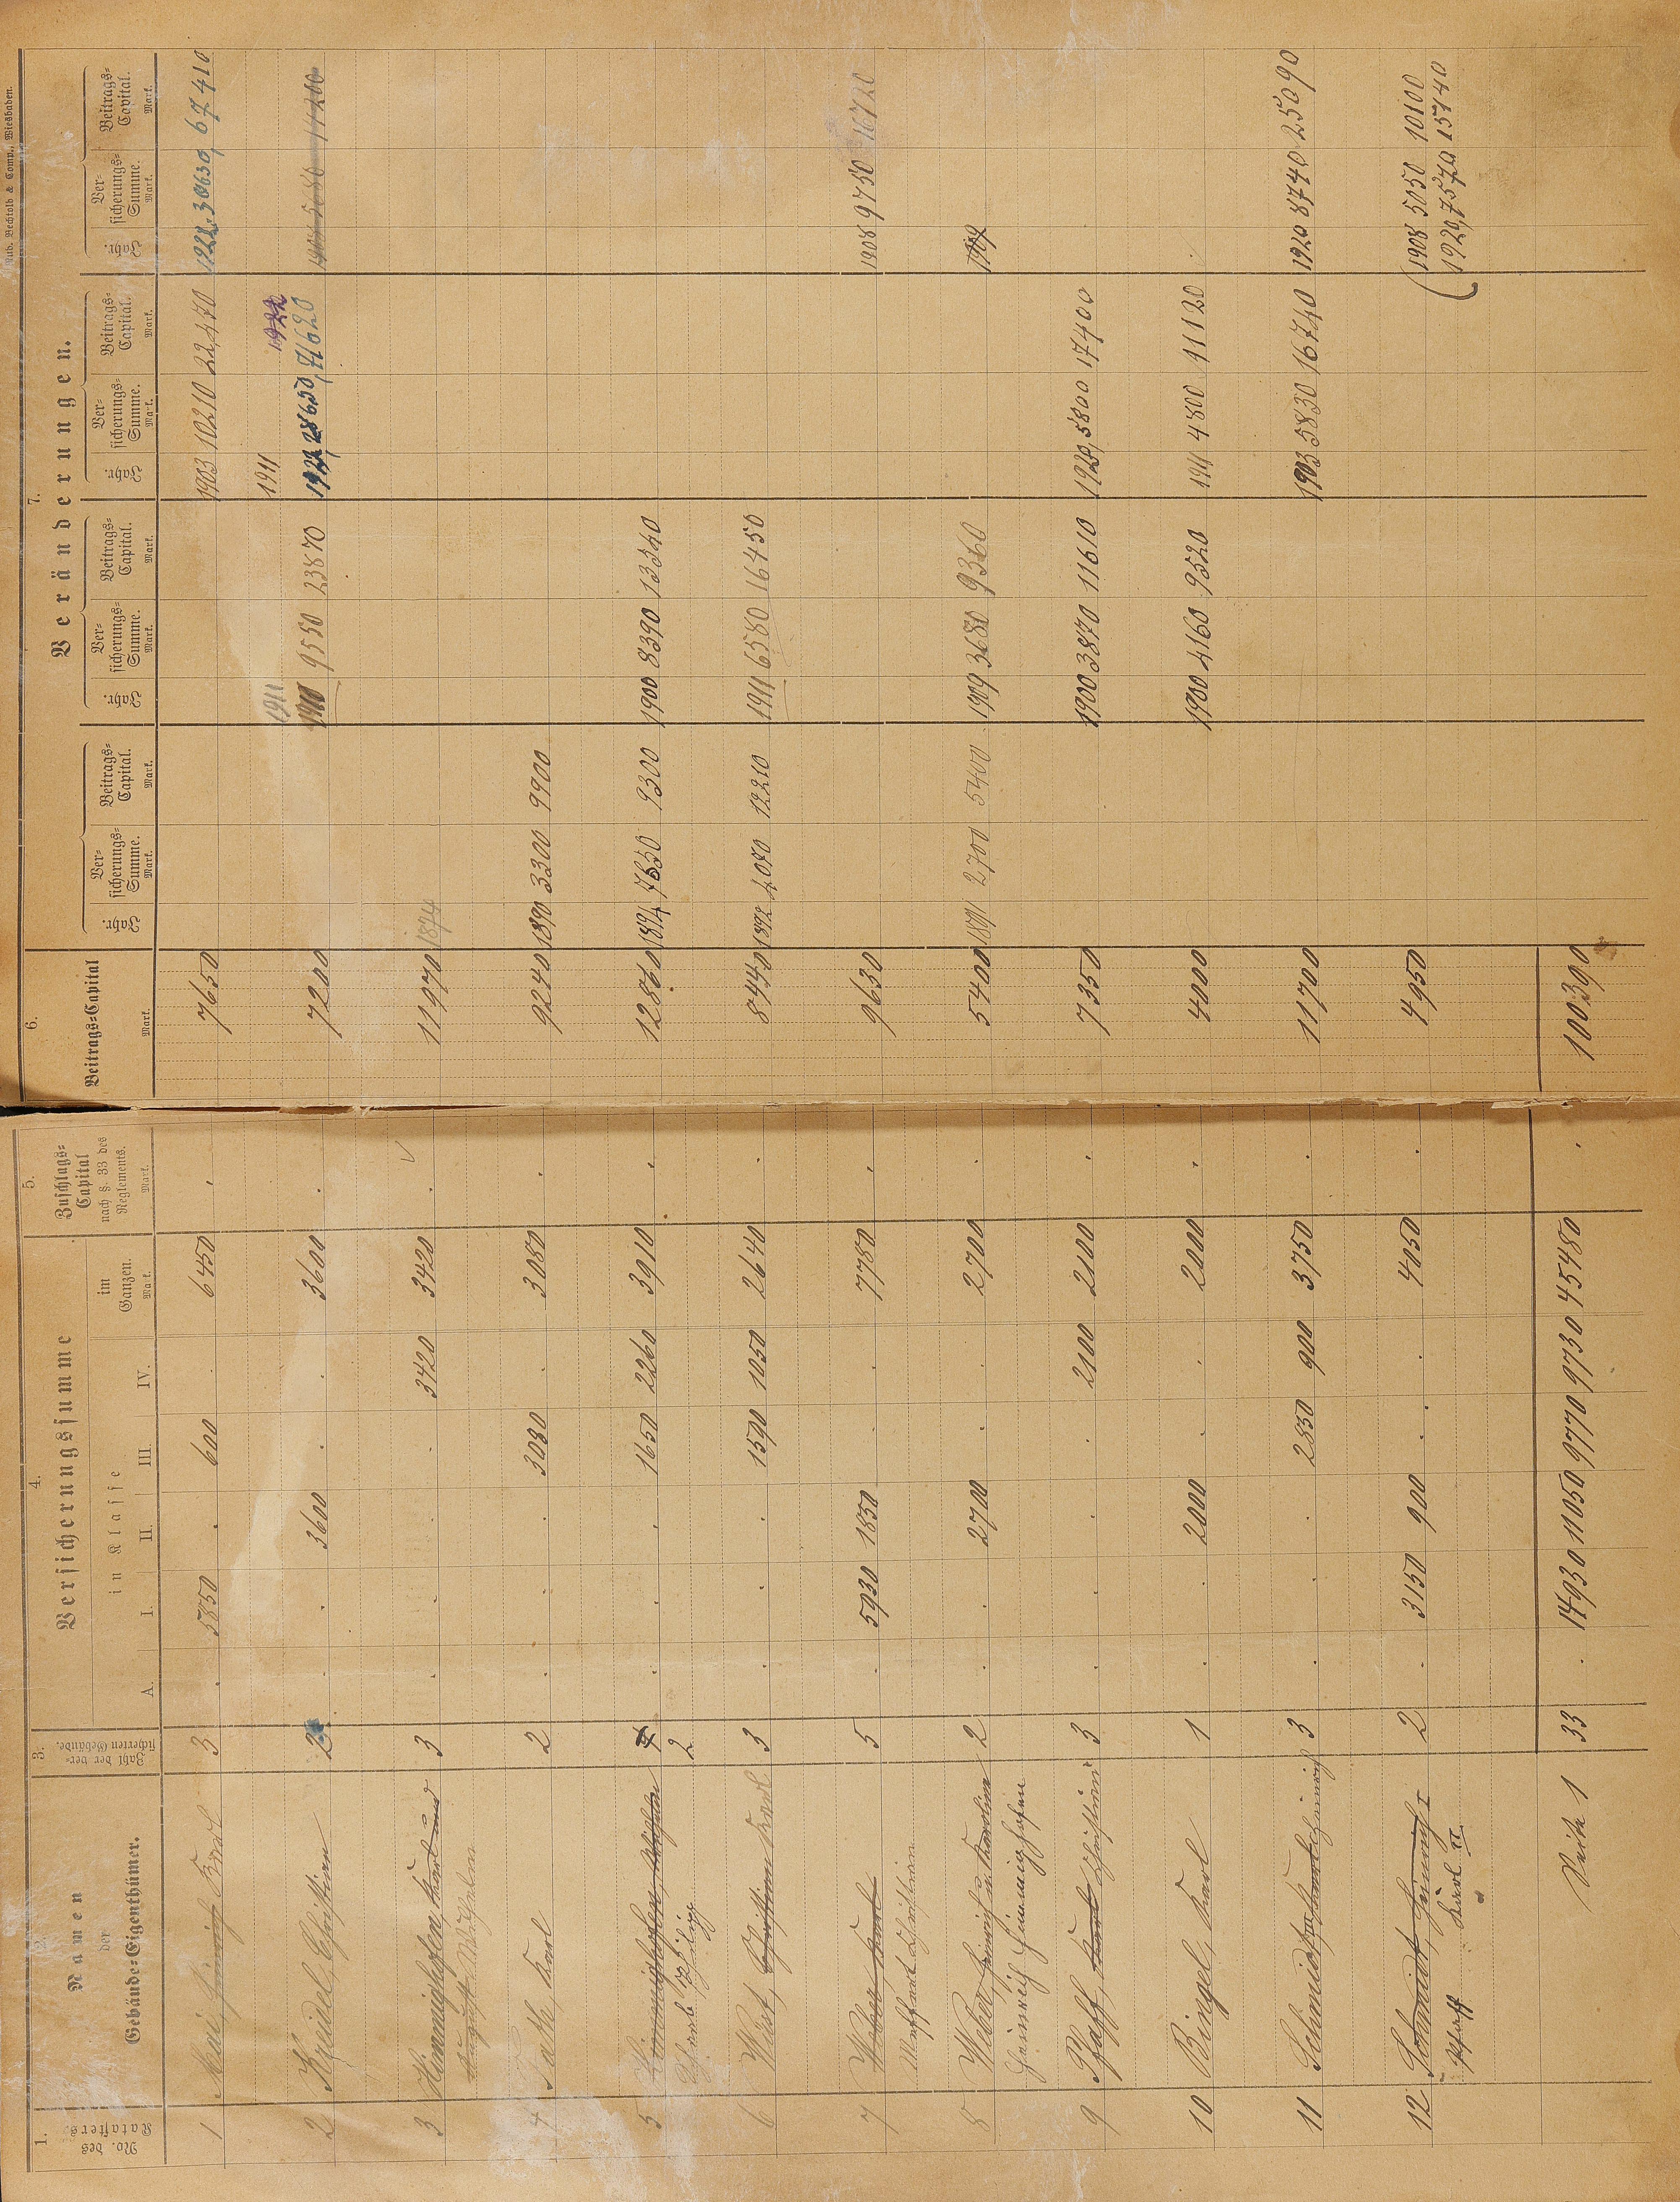 Rud. Bechtold & Comp., Wiesbaden.
1. 2. 3. 4. 5. 6. 7.
No. des Katasters.
Namen der Gebäude-Eigenthümer.
Zahl der versicherten Gebäude.
Versicherungssumme
in Klasse
A. I. II. III. IV.
im Ganzen. Mark.
Zuschlags-Capital nach §. 33 des Reglements. Mark.
Beitrags-Capital Mark.
Veränderungen.
Jahr. Versicherungs-Summe. Mark. Beitrags-Capital. Mark.
Jahr. Versicherungs-Summe. Mark. Beitrags-Capital. Mark.
Jahr. Versicherungs-Summe. Mark. Beitrags-Capital. Mark.
Jahr. Versicherungs-Summe. Mark. Beitrags-Capital. Mark.
1 Karl 3 . 5850 . 600 . 6450 . 7650 1903 10210 22470 1922 30630 67410
1911 1911 1922
2 Kreidel, Christian 2 . . 3600 . . 3600 . 7200 1910 9550 23870 1922 28650 71620 1908 5680 14200
3 Himmighofen, Karl und 3 . . . . 3420 3420 . 11970 1874
August Wilhelm
4 Fath, Karl 2 . . . 3080 . 3080 . 9240 1890 3300 9900
5 Himmighofen, 4 . . . 1650 2260 3910 . 12860 1894 7650 9300 1900 8390 13340
Philipp 2
6 Wüst, Christian Karl 3 . . . 1590 1050 2640 . 8440 1892 4070 12210 1911 6580 16450
7 Weber, Karl 5 . 5930 1850 . . 7780 . 9630 1908 9750 16720
Christian
8 Weber, Heinrich u. Karoline 2 . . 2700 . . 2700 . 5400 1891 2700 5400 1909 3680 9360 1909
Heinrich Himmighofen
9 Pfaff, Karl Christian 3 . . . . 2100 2100 . 7350 1900 3870 11610 1929 5800 17400
10 Bingel, Karl 1 . . 2000 . . 2000 . 4000 1900 4160 9520 1911 4800 11120
11 Schmidt III Karl Heinrich 3 . . . 2850 900 3750 . 11700 1903 5830 16740 1920 8740 25090
12 Schmidt, Heinrich I 2 . 3150 900 . . 4050 . 4950 (1908 5050 10100
Pfaff Karl II 1920, 7570 15140
Seite 1 33 . 14930 11050 9770 9730 45480 . 100390